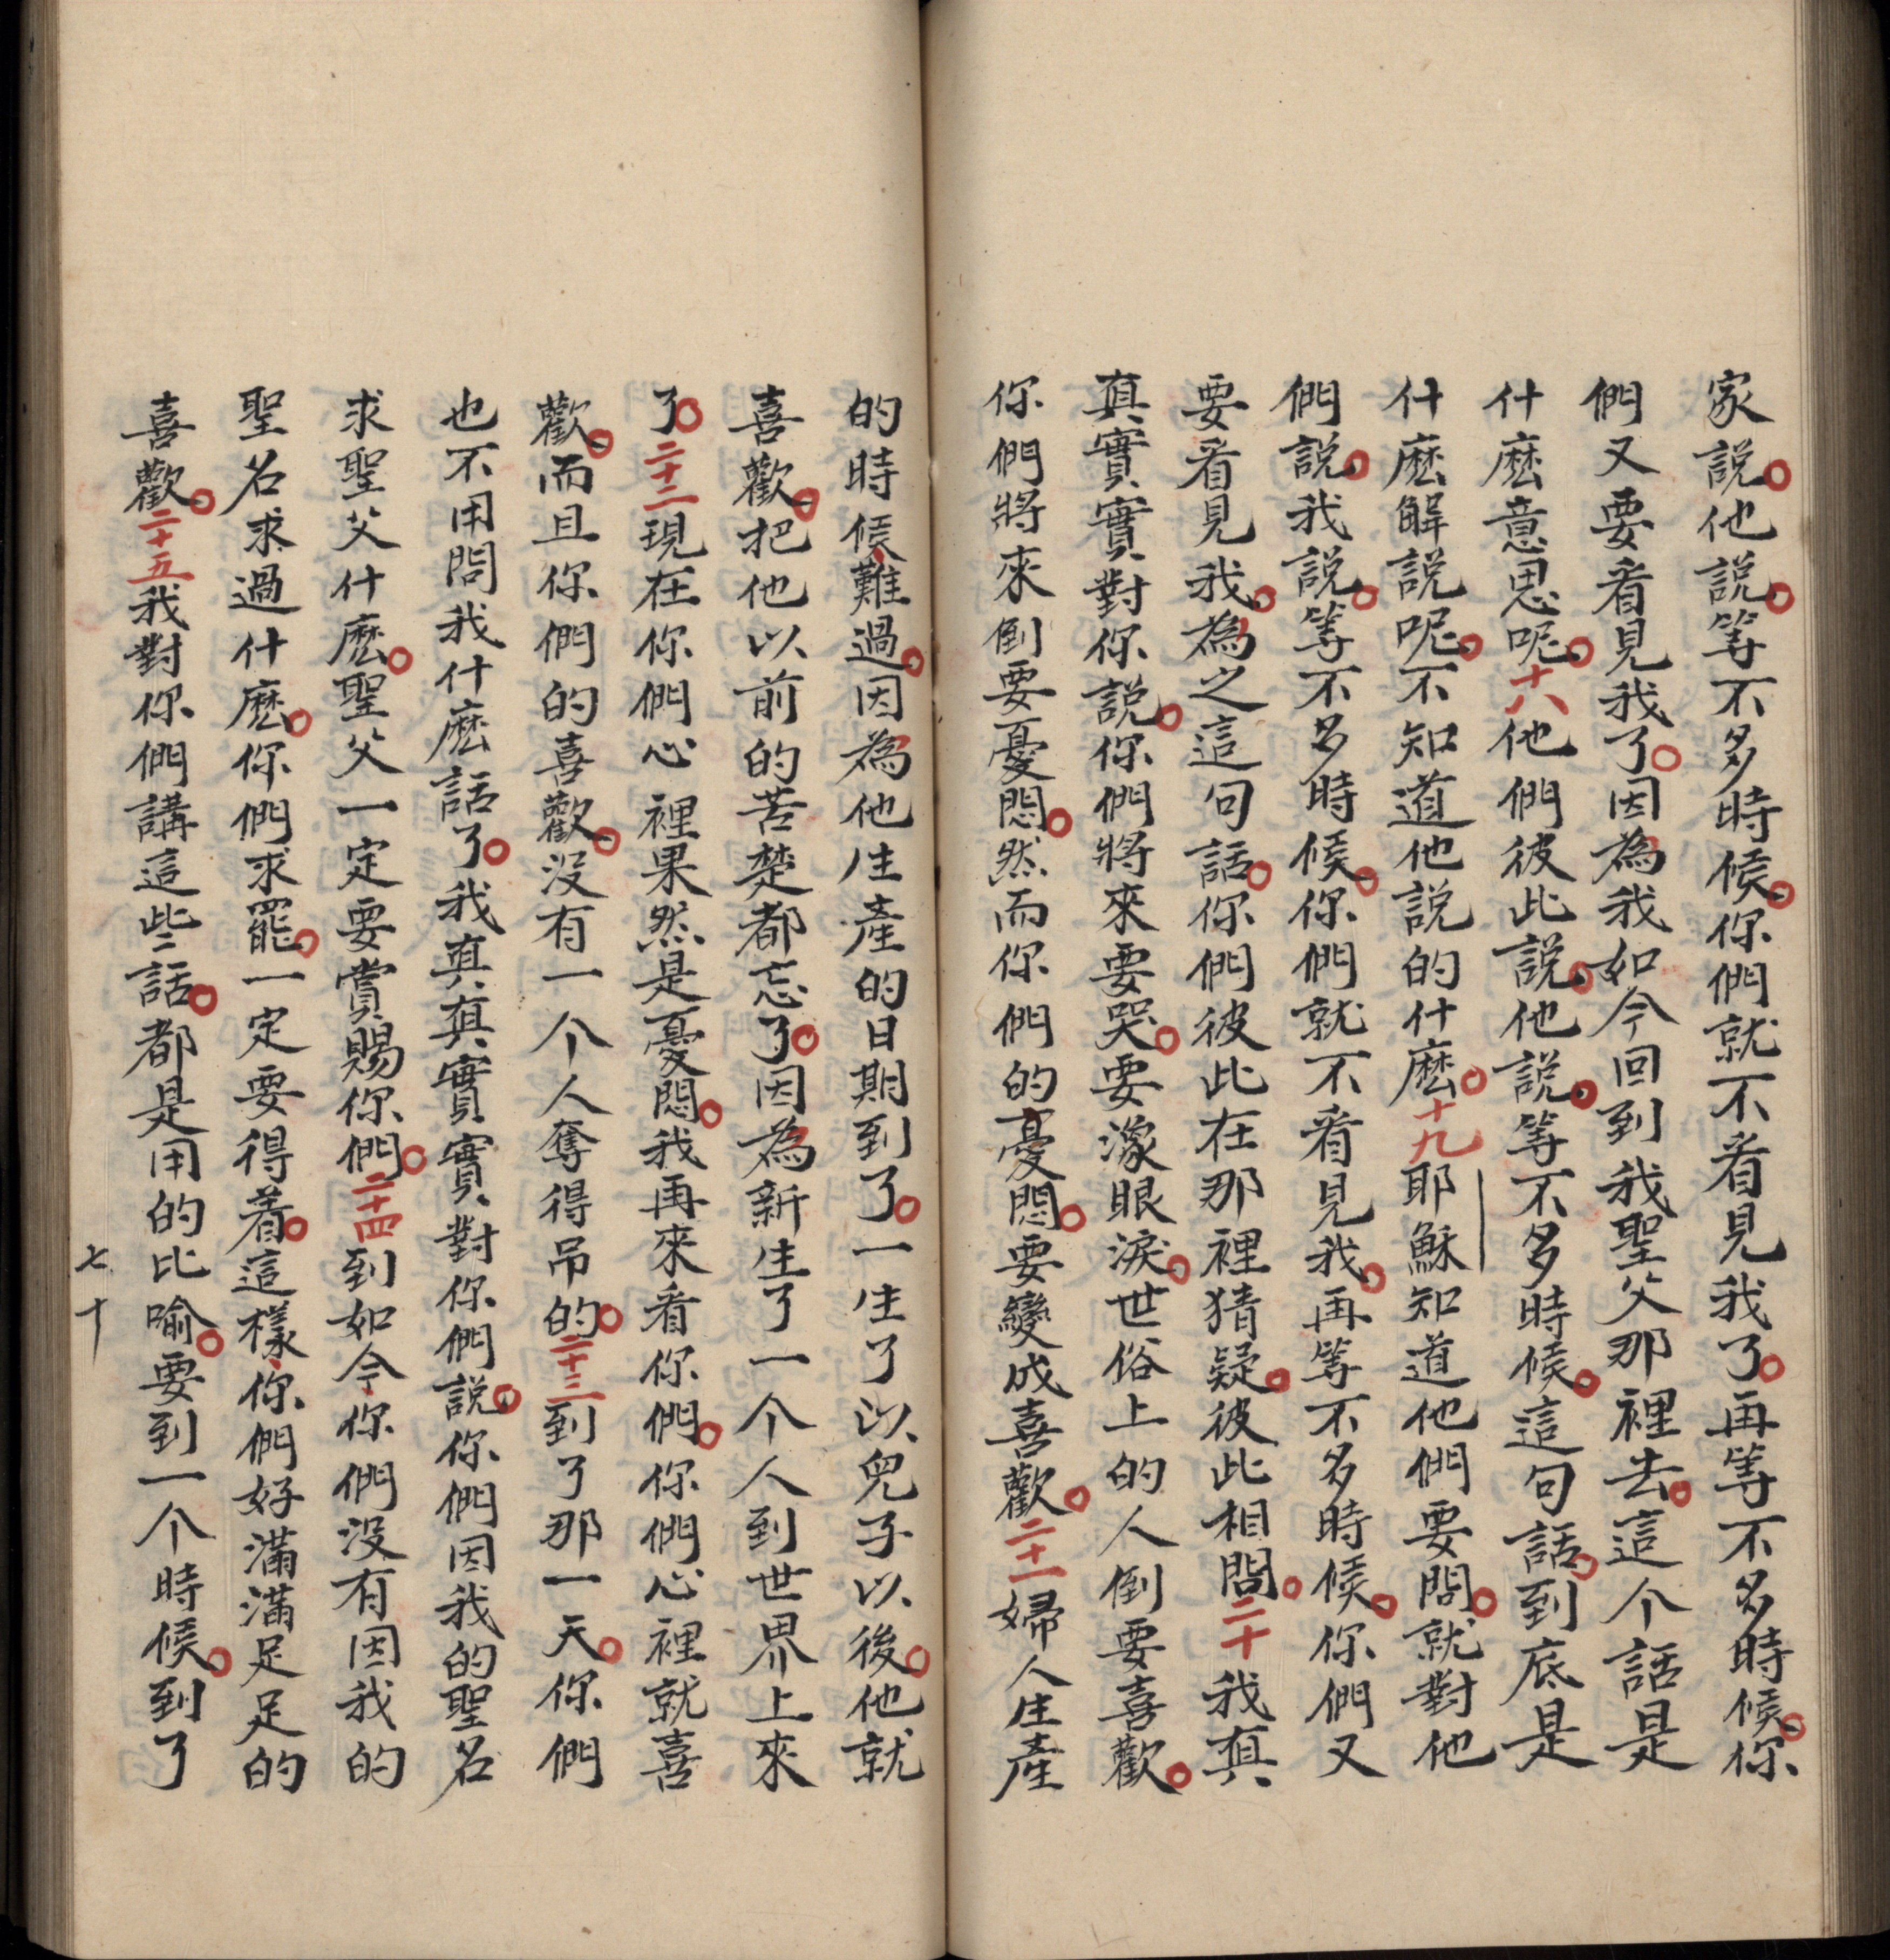 家説。他説。等不多時候。你們就不看見我了。再等不多時候。你
們又要看見我了。因為我如今回到我聖父那裡去。這个話是
什麽意思呢。十八他們彼此説。他説。等不多時候。這句話。到底是
什麽解説呢。不知道他説的什麽。十九耶穌知道他們要問。就對他
們説。我説。等不多時候。你們就不看見我。再等不多時候。你們又
要看見我。為之這句話。你們彼此在那裡猜疑。彼此相問。二十我真
真實實對你説。你們將來要哭。要濠眼淚。世俗上的人倒要喜歡。
你們將來倒要憂悶。然而你們的憂悶。要變成喜歡。二十一婦人生產
的時候、難過。因為他生產的日期到了。一生了以兒子以後。他就
喜歡。把他以前的苦楚都忘了。因為新生了一个人到世界上來
了。二十二現在你們心裡果然是憂悶。我再來看你們。你們心裡就喜
歡。而且你們的喜歡。沒有一个人奪得吊的。二十三到了那一天。你們
也不用問我什麽話了。我真真實實對你們説。你們因我的聖名
求聖父什麽。聖父一定要賞賜你們。二十四到如今、你們沒有因我的
聖名求過什麽。你們求罷。一定要得着。這樣、你們好滿滿足足的
喜歡。二十五我對你們講這些話。都是用的比喻。要到一个時候。到了
七十